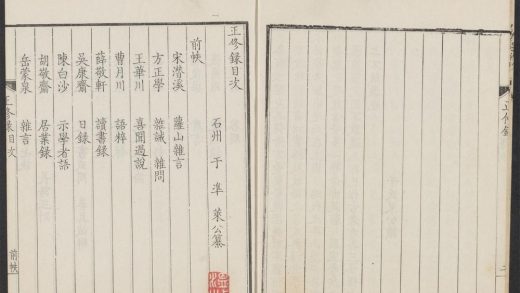 正修録
正修録目次
石州 于準 萊公纂
前帙
宋潛溪 蘿山雜言
方正學 雜誡 雜問
王華川 喜聞過說
曹月川 語粹
薛敬軒 讀書録
吳康齋 日録
陳白沙 示學者語
胡敬齋 居業録
岳蒙泉 雜言
正修録目次 前帙